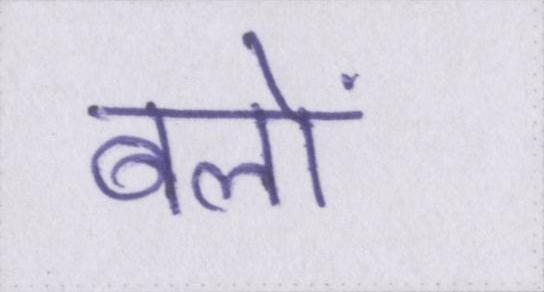 बलों